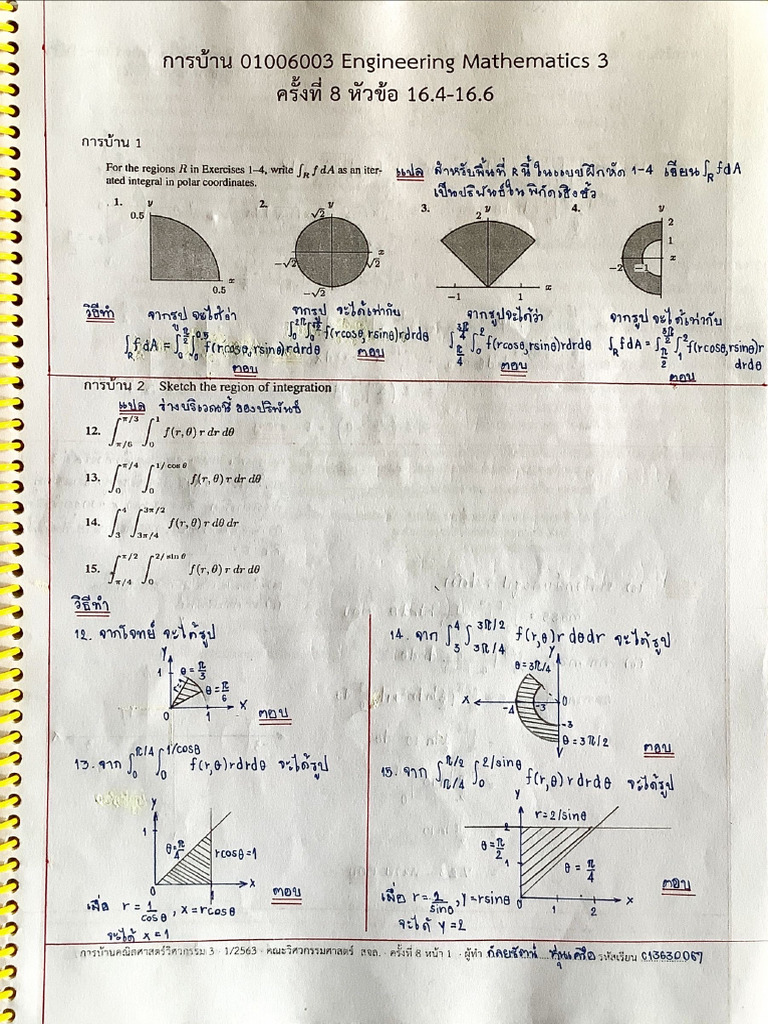 การบ้าน 01006003 Engineering Mathematics 3
ครั้งที่ 8 หัวข้อ 16.4-16.6
การบ้าน 1
For the regions R in Exercises 1–4, write ∫_R f dA as an iter-
ated integral in polar coordinates.
แปล สำหรับพื้นที่ R นี้ ในแบบฝึกหัด 1-4 เขียน ∫_R f dA
เป็นปริพันธ์ใน พิกัดเชิงขั้ว
1. y 0.5 0.5 x
2. y √2 x −√2 √2 −√2
3. y 2 −1 1 x
4. y 2 1 x −2 −1
วิธีทำ จากรูป จะได้ว่า
∫_R f dA = ∫_0^{π/2} ∫_0^{0.5} f(rcosθ, rsinθ)rdrdθ
ตอบ
จากรูป จะได้เท่ากับ
∫_0^{2π} ∫_0^{√2} f(rcosθ, rsinθ)rdrdθ
ตอบ
จากรูปจะได้ว่า
∫_{π/4}^{3π/4} ∫_0^2 f(rcosθ, rsinθ)rdrdθ
ตอบ
จากรูป จะได้เท่ากับ
∫_R f dA = ∫_{π/2}^{3π/2} ∫_1^2 f(rcosθ, rsinθ)r
drdθ
ตอบ
การบ้าน 2 Sketch the region of integration
แปล ร่างบริเวณนี้ ของปริพันธ์
12. ∫_{π/6}^{π/3} ∫_0^1 f(r, θ) r dr dθ
13. ∫_0^{π/4} ∫_0^{1/cos θ} f(r, θ) r dr dθ
14. ∫_3^4 ∫_{3π/4}^{3π/2} f(r, θ) r dθ dr
15. ∫_{π/4}^{π/2} ∫_0^{2/sin θ} f(r, θ) r dr dθ
วิธีทำ
12. จากโจทย์ จะได้รูป
y
1 θ = π/3
r=1 θ = π/6
0 1 x
ตอบ
13. จาก ∫_0^{π/4} ∫_0^{1/cosθ} f(r,θ)rdrdθ จะได้รูป
y
1
θ=π/4 rcosθ=1
0 1 x
ตอบ
เมื่อ r = 1/cosθ , x = rcosθ
จะได้ x = 1
14. จาก ∫_3^4 ∫_{3π/4}^{3π/2} f(r,θ)r dθdr จะได้รูป
θ = 3π/4 y
x -4 -3 0
-3
θ = 3π/2
ตอบ
15. จาก ∫_{π/4}^{π/2} ∫_0^{2/sinθ} f(r,θ)rdrdθ จะได้รูป
y r=2/sinθ
2
θ = π/2
1 θ = π/4
0 1 2 x
ตอบ
เมื่อ r = 2/sinθ , y = rsinθ
จะได้ y = 2
การบ้านคณิตศาสตร์วิศวกรรม 3 · 1/2563 · คณะวิศวกรรมศาสตร์ สจล. · ครั้งที่ 8 หน้า 1 · ผู้ทำ รหัสเรียน